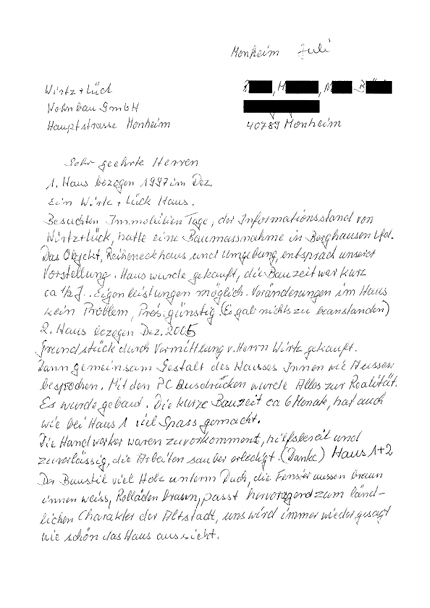 Monheim Juli
Wirtz + Lück
Wohnbau GmbH
Hauptstrasse Monheim
40789 Monheim
Sehr geehrte Herren
1. Haus bezogen 1997 im Dez.
Ein Wirtz + Lück Haus.
Besuchten Immobilien Tage, der Informationsstand von
Wirtz + Lück, hatte eine Baumassnahme in Berghausen Lfd.
Das Objekt, Reiheneckhaus und Umgebung, entsprach unserer
Vorstellung. Haus wurde gekauft, die Bauzeit war kurz
ca 1/2 J. Eigenleistungen möglich. Veränderungen im Haus
kein Problem, Preisgünstig (Egal nichts zu beanstanden)
2. Haus bezogen Dez. 2005
Grundstück durch Vermittlung v. Herrn Wirtz gekauft.
Dann gemeinsam Gestalt des Hauses Innen wie Aussen
besprochen. Mit den PC Ausdrücken wurde Alles zur Realität.
Es wurde gebaut. Die kurze Bauzeit ca 6 Monate, hat auch
wie bei Haus 1 viel Spass gemacht.
Die Handwerker waren zuvorkommend, hilfsbereit und
zuverlässig, die Arbeiten sauber erledigt (Danke) Haus 1+2
Der Baustil viel Holz unterm Dach, die Fenster aussen braun
innen weiss, Rolläden braun, passt hervorragend zum länd-
lichen Charakter der Altstadt, uns wird immer wieder gesagt
wie schön das Haus aussieht.